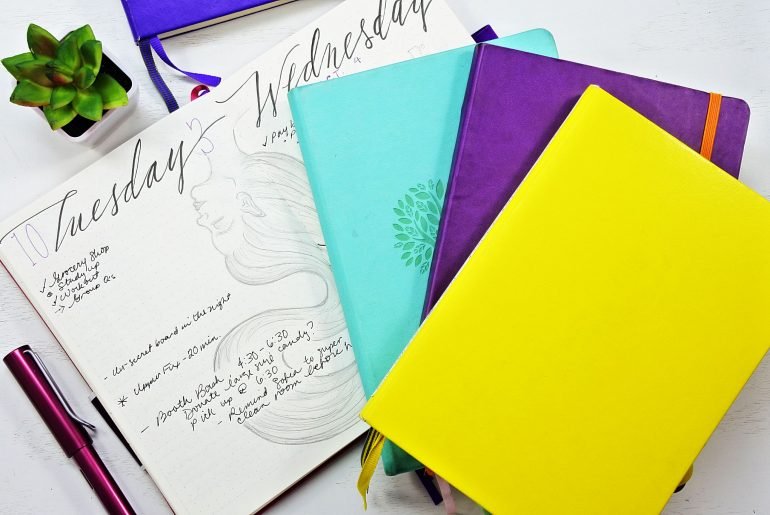 10 Tuesday
✓ Grocery Shop
• Study up
✓ Workout
→ Group Qs
- secret board in the night
* Upper Fix - 20 min.
- Booth Bash 4:30 - 6:30
Donate large size candy?
Pick up @ 6:30
- Remind Sofia to super
clean room before
Wednesday
✓ Pay